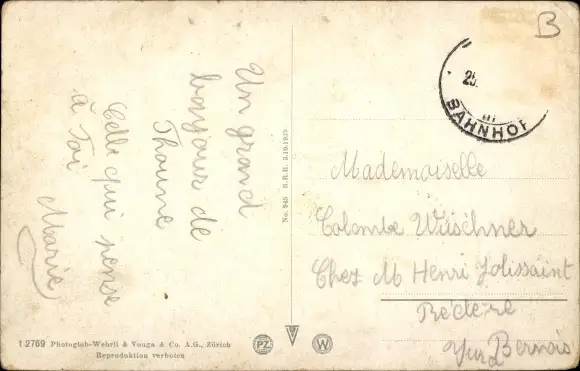 Un grand
bonjour de
Thoune
Celle qui pense
à Toi
Marie
No. 945 B.R.B. 3.10.1939
B
25.
III
BAHNHOF
Mademoiselle
Colombe Wüschner
Chez M Henri Jolissaint
Réclère
Jura Bernois
12769 Photoglob-Wehrli & Vouga & Co. A.G., Zürich
Reproduktion verboten
PZ
W